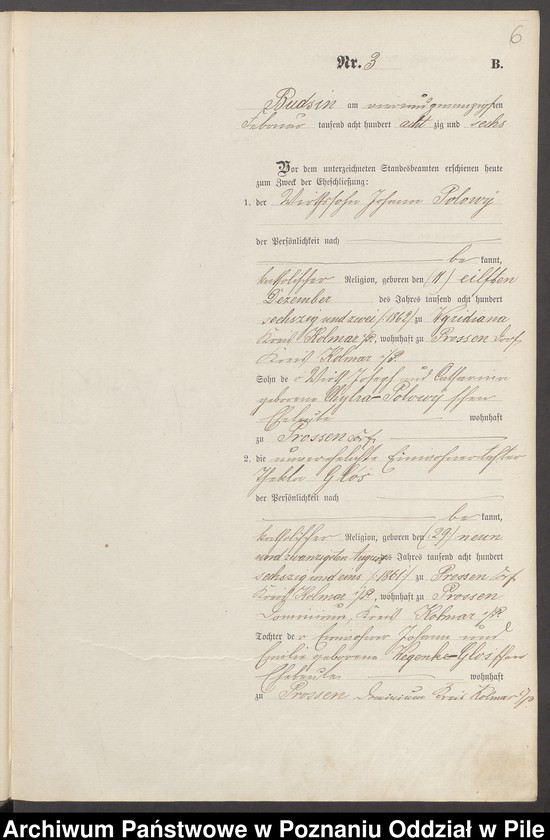 6
Nr. 3 B.
Budsin am vierundzwanzigsten
Februar tausend acht hundert acht zig und sechs
Vor dem unterzeichneten Standesbeamten erschienen heute
zum Zweck der Eheschließung:
1. der Wirthssohn Johann Polowy
der Persönlichkeit nach
be kannt,
katholischer Religion, geboren den (11) eilften
Dezember des Jahres tausend acht hundert
sechszig und zwei (1862) zu
Kreis Kolmar i/P., wohnhaft zu Prossen Dorf,
Kreis Kolmar i/P.
Sohn de r Wirth Joseph und Catharina
geborene Polowy'schen
Eheleute wohnhaft
zu Prossen Dorf
2. die unverehelichte Einwohnertochter
Thekla Glos
der Persönlichkeit nach
be kannt,
katholischer Religion, geboren den (29) neun
und zwanzigsten August des Jahres tausend acht hundert
sechszig und eins (1861) zu Prossen Dorf
Kreis Kolmar i/P., wohnhaft zu Prossen
Dominium, Kreis Kolmar i/P.
Tochter de r Einwohner Johann und
Emilie geborene Wegenke-Glos'schen
Eheleute wohnhaft
zu Prossen Dominium Kreis Kolmar i/P
Archiwum Państwowe w Poznaniu Oddział w Pile